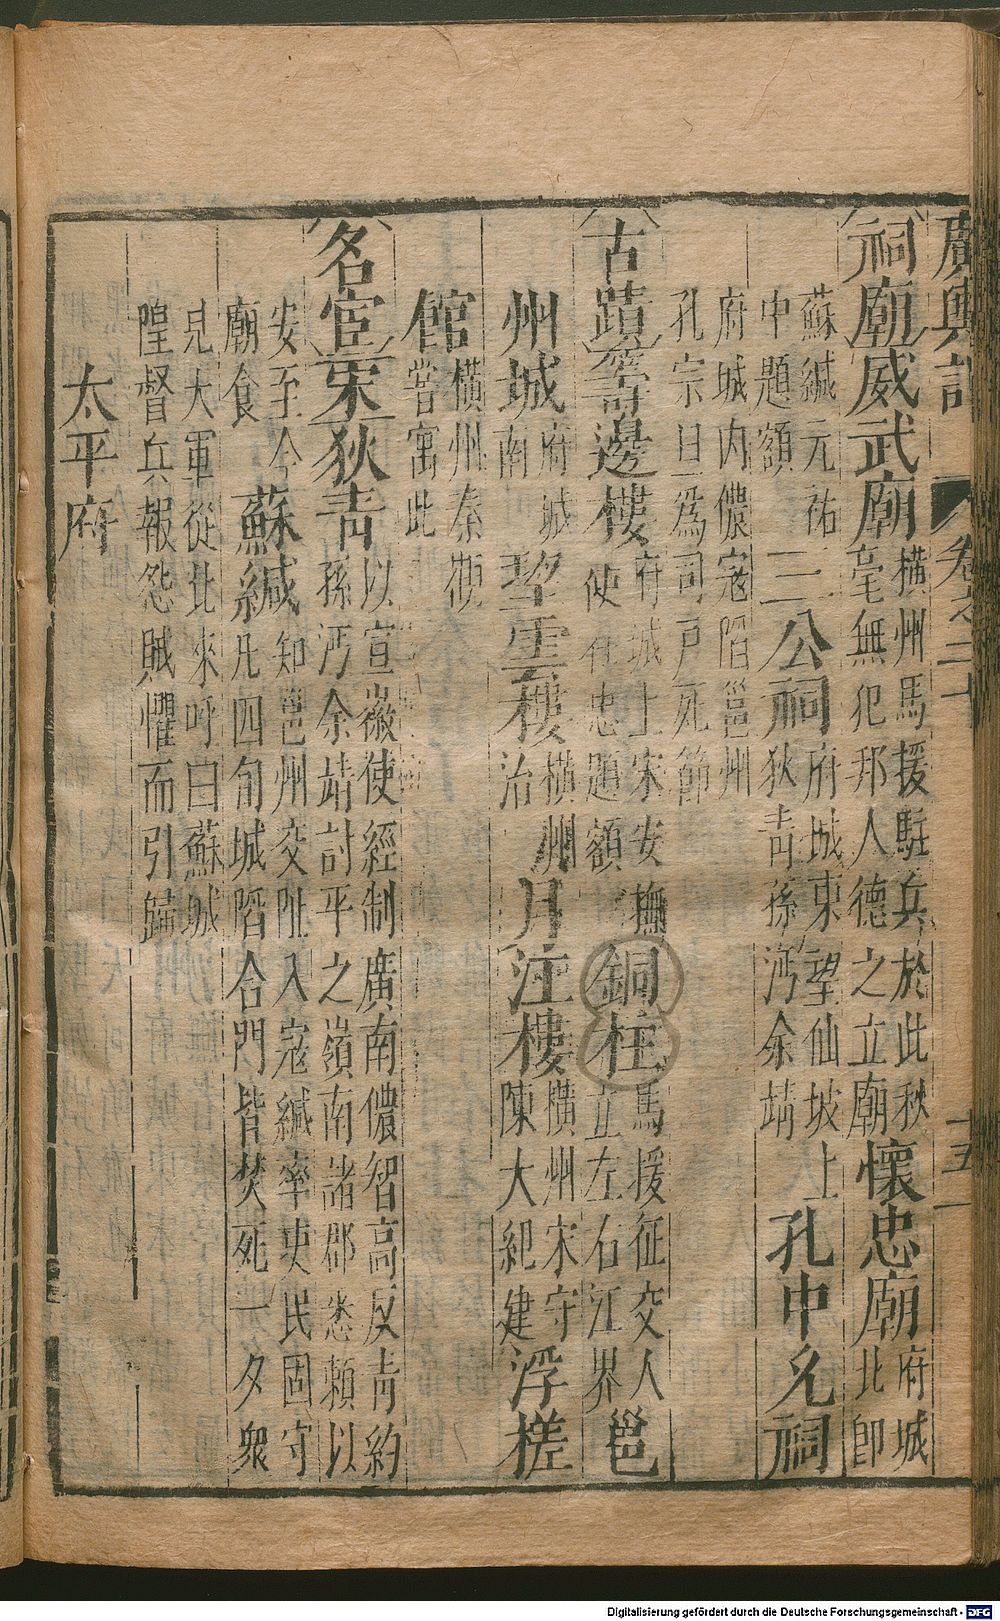 廣輿記 卷之二十 十五
祠廟 威武廟 橫州馬援駐兵於此秋毫無犯邦人德之立廟 懷忠廟 府城北卽
蘇緘元祐中題額 三公祠 府城東望仙坡上狄靑孫沔余靖 孔中允祠
府城内儂寇陷邕州孔宗旦爲司戶死節
古蹟 籌邊樓 府城上宋安撫使 忠題額 銅柱 馬援征交人立左右江界 邕
州城 府城南 碧雲樓 橫州治 月注樓 橫州宋守陳大紀建 浮槎
館 橫州秦觀嘗寓此
名宦 宋 狄靑 以宣徽使經制廣南儂智高反靑約孫沔余靖討平之嶺南諸郡悉賴以
安至今廟食 蘇緘 知邕州交阯入寇緘率吏民固守凡四旬城陷合門皆焚死一夕衆
見大軍從北來呼曰蘇城隍督兵報怨賊懼而引歸
太平府
Digitalisierung gefördert durch die Deutsche Forschungsgemeinschaft - DFG